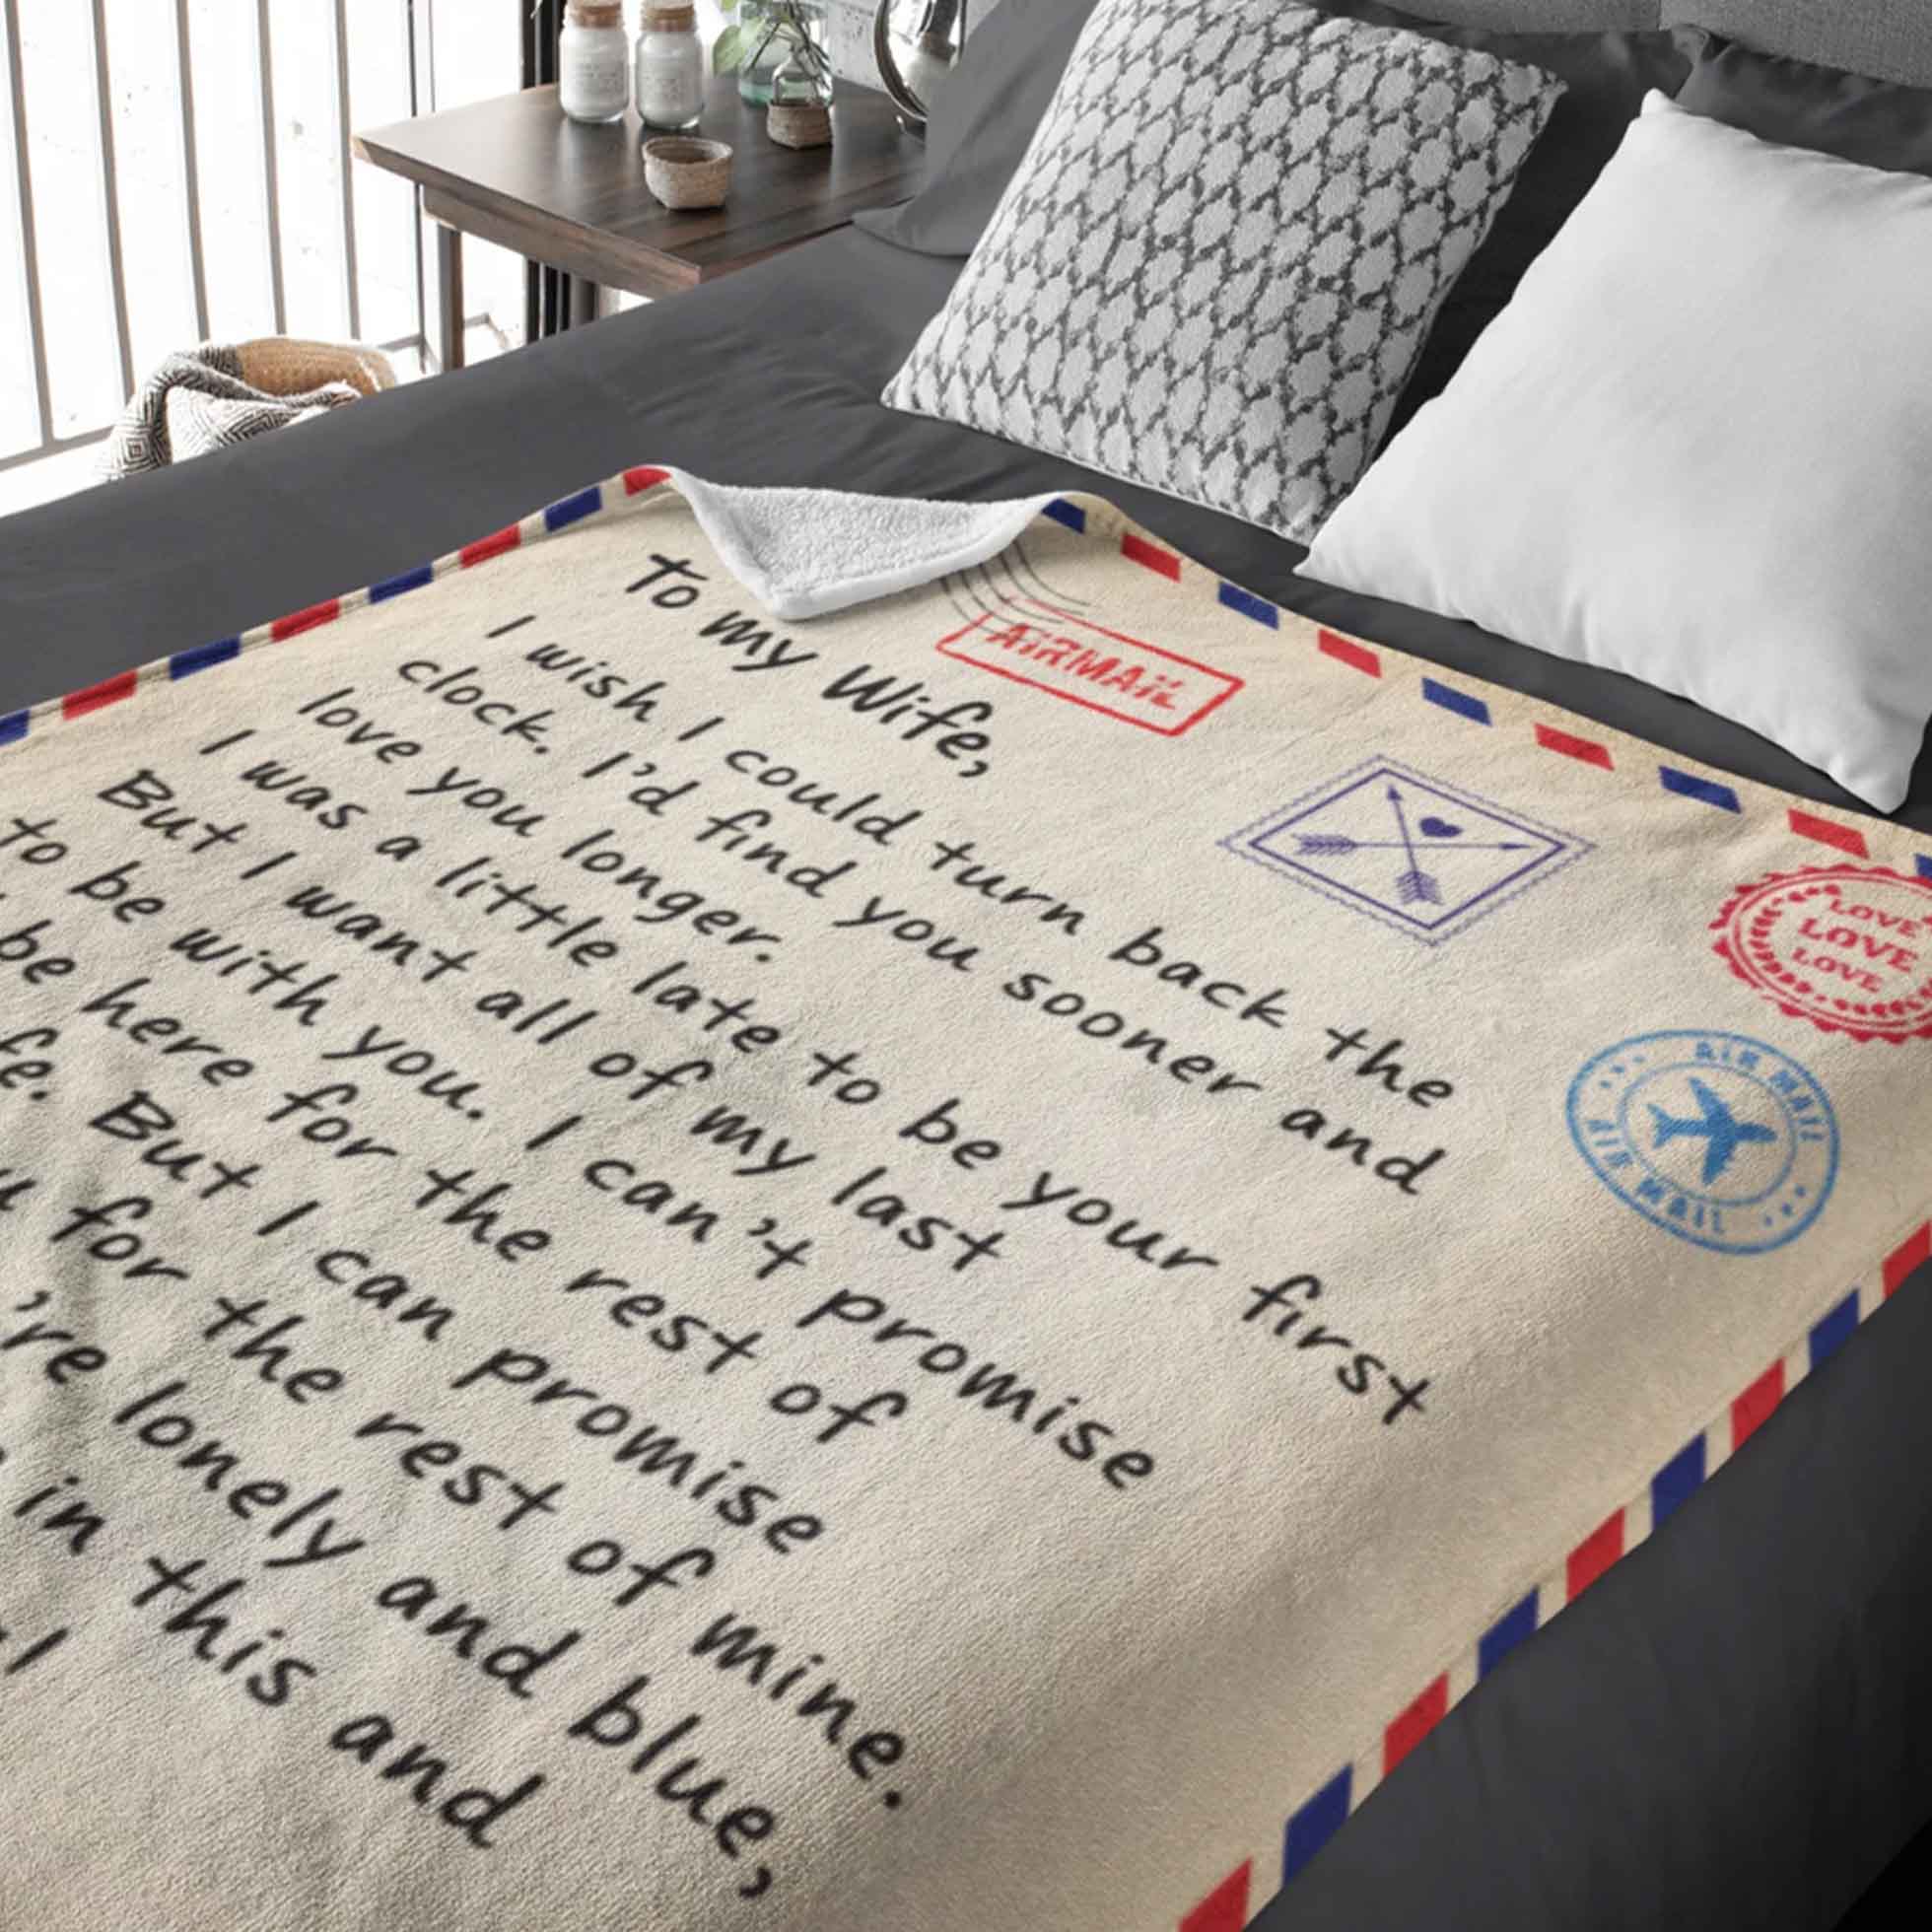 To my Wife,
I wish I could turn back the
clock. I'd find you sooner and
love you longer.
I was a little late to be your first
But I want all of my last
to be with you. I can't promise
be here for the rest of
fe. But I can promise
for the rest of mine.
're lonely and blue,
in this and
AIRMAIL
LOVE
LOVE
LOVE
AIR MAIL
AIR MAIL